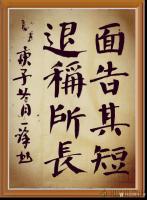 面告其短
退稱所長
庚子冬月一泽书